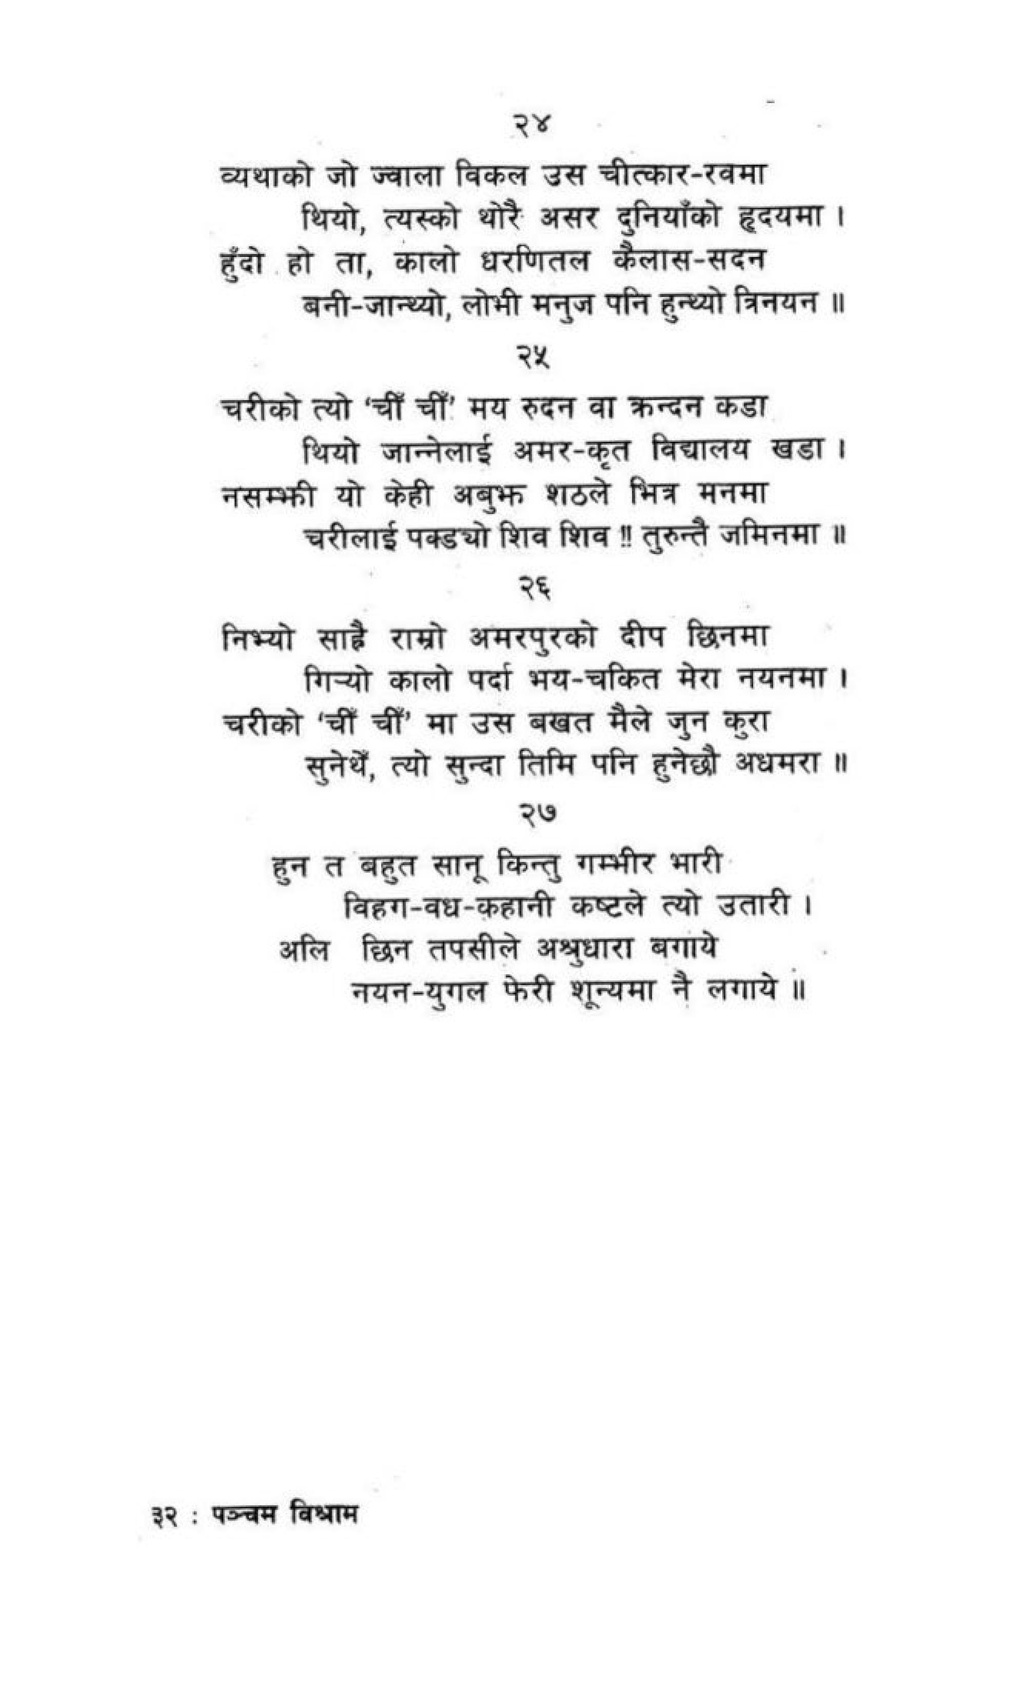 २४
व्यथाको जो ज्वाला विकल उस चीत्कार-रवमा
थियो, त्यस्को थोरै असर दुनियाँको हृदयमा ।
हुँदो हो ता, कालो धरणितल कैलास-सदन
बनी-जान्थ्यो, लोभी मनुज पनि हुन्थ्यो त्रिनयन ॥
२५
चरीको त्यो 'चीँ चीँ' मय रुदन वा क्रन्दन कडा
थियो जान्नेलाई अमर-कृत विद्यालय खडा ।
नसम्झी यो केही अबुझ शठले भित्र मनमा
चरीलाई पक्ड्यो शिव शिव !! तुरुन्तै जमिनमा ॥
२६
निभ्यो साह्रै राम्रो अमरपुरको दीप छिनमा
गिर्‍यो कालो पर्दा भय-चकित मेरा नयनमा ।
चरीको 'चीँ चीँ' मा उस बखत मैले जुन कुरा
सुनेथेँ, त्यो सुन्दा तिमि पनि हुनेछौ अधमरा ॥
२७
हुन त बहुत सानू किन्तु गम्भीर भारी
विहग-वध-कहानी कष्टले त्यो उतारी ।
अलि छिन तपसीले अश्रुधारा बगाये
नयन-युगल फेरी शून्यमा नै लगाये ॥
३२ : पञ्चम विश्राम